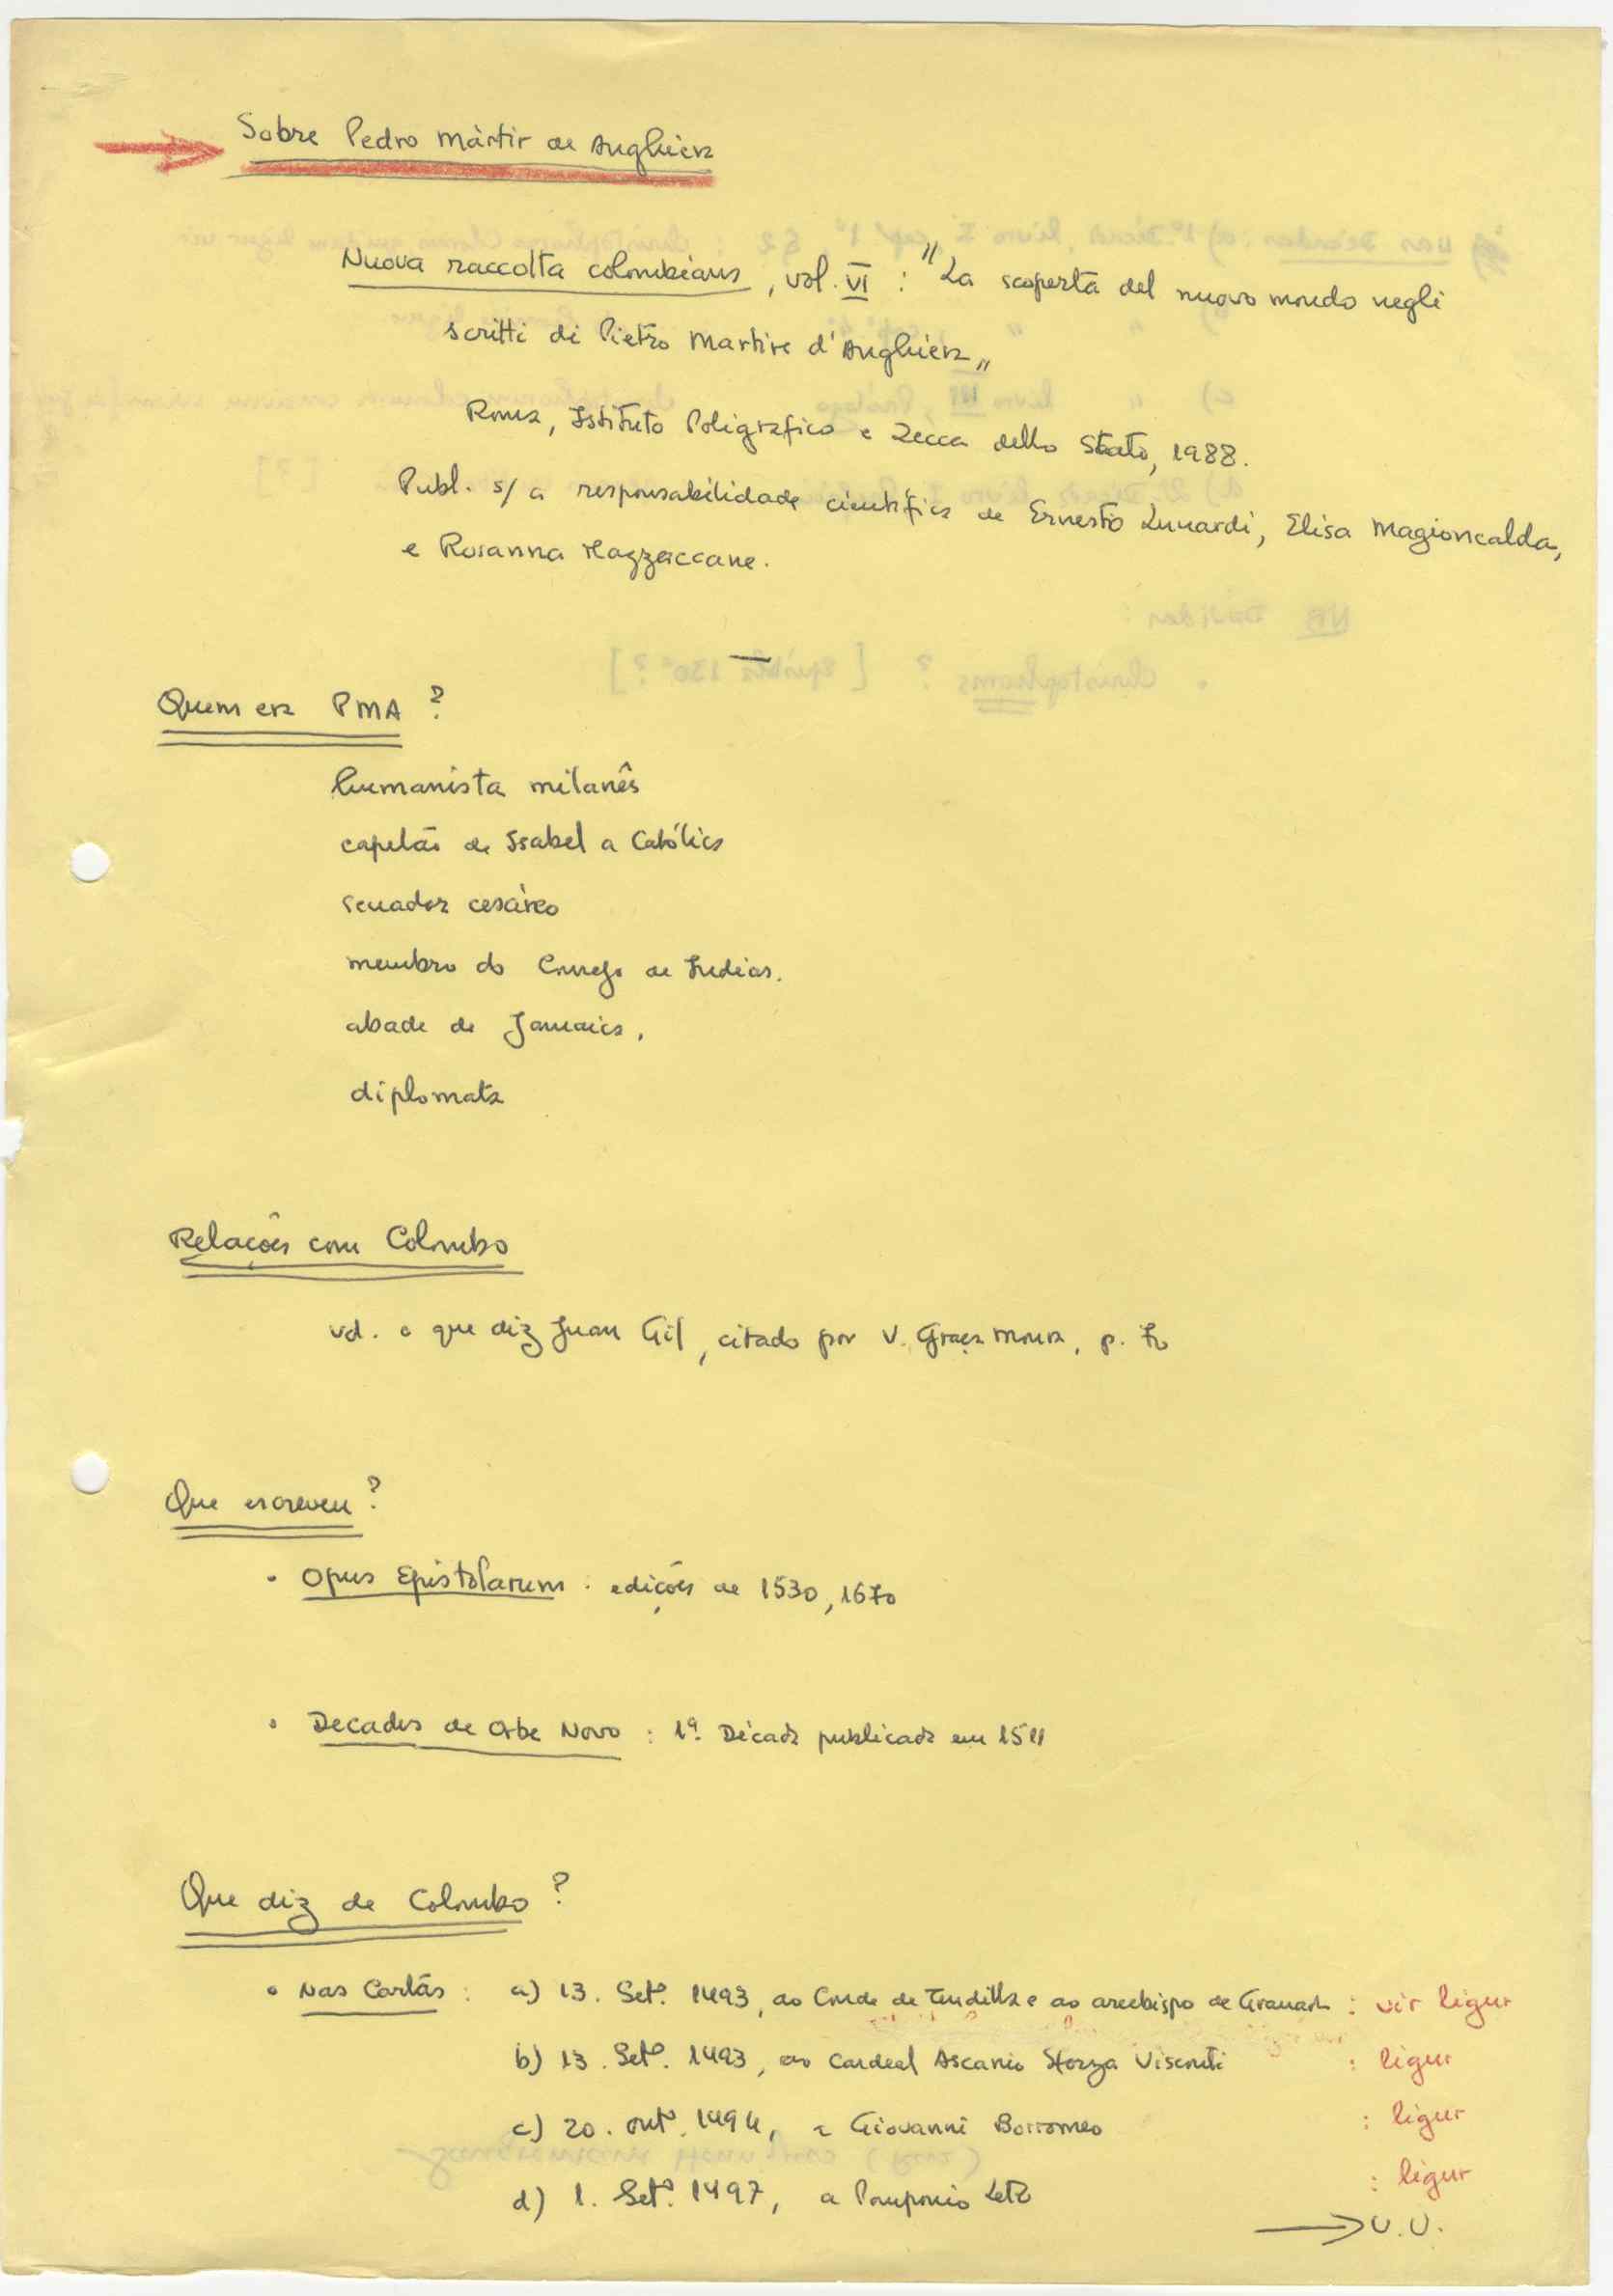 Sobre Pedro Mártir de Anghiera
Nuova raccolta colombiana, vol. VI : "La scoperta del nuovo mondo negli
scritti di Pietro Martire d'Anghiera"
Roma, Istituto Poligrafico e Zecca dello Stato, 1988.
Publ. s/ a responsabilidade científica de Ernesto Lunardi, Elisa Magioncalda,
e Rosanna Mazzaccane.
—
Quem era PMA ?
humanista milanês
capelão de Isabel a Católica
senador cesáreo
membro do Consejo de Indias.
abade de Jamaica,
diplomata
Relações com Colombo
vd. o que diz Juan Gil, citado por V. Graça Moura, p. 70
Que escreveu ?
• Opus Epistolarum : edições de 1530, 1670
• Decades de Orbe Novo : 1ª. Década publicada em 1511
Que diz de Colombo ?
• Nas Cartas : a) 13. Setº. 1493, ao Conde de Tendilla e ao arcebispo de Granada : vir ligur
b) 13. Setº. 1493, ao Cardeal Ascanio Sforza Visconti : ligur
c) 20. outº. 1494, a Giovanni Borromeo : ligur
d) 1. Setº. 1497, a Pomponio Leto : ligur
→ V.V.